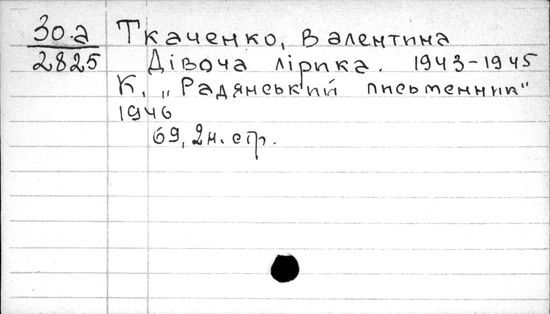 30.а
2825
Ткаченко, Валентина
Дівоча лірика. 1943-1945
К, „Радянський письменник"
1946
69, 2 н. стр.